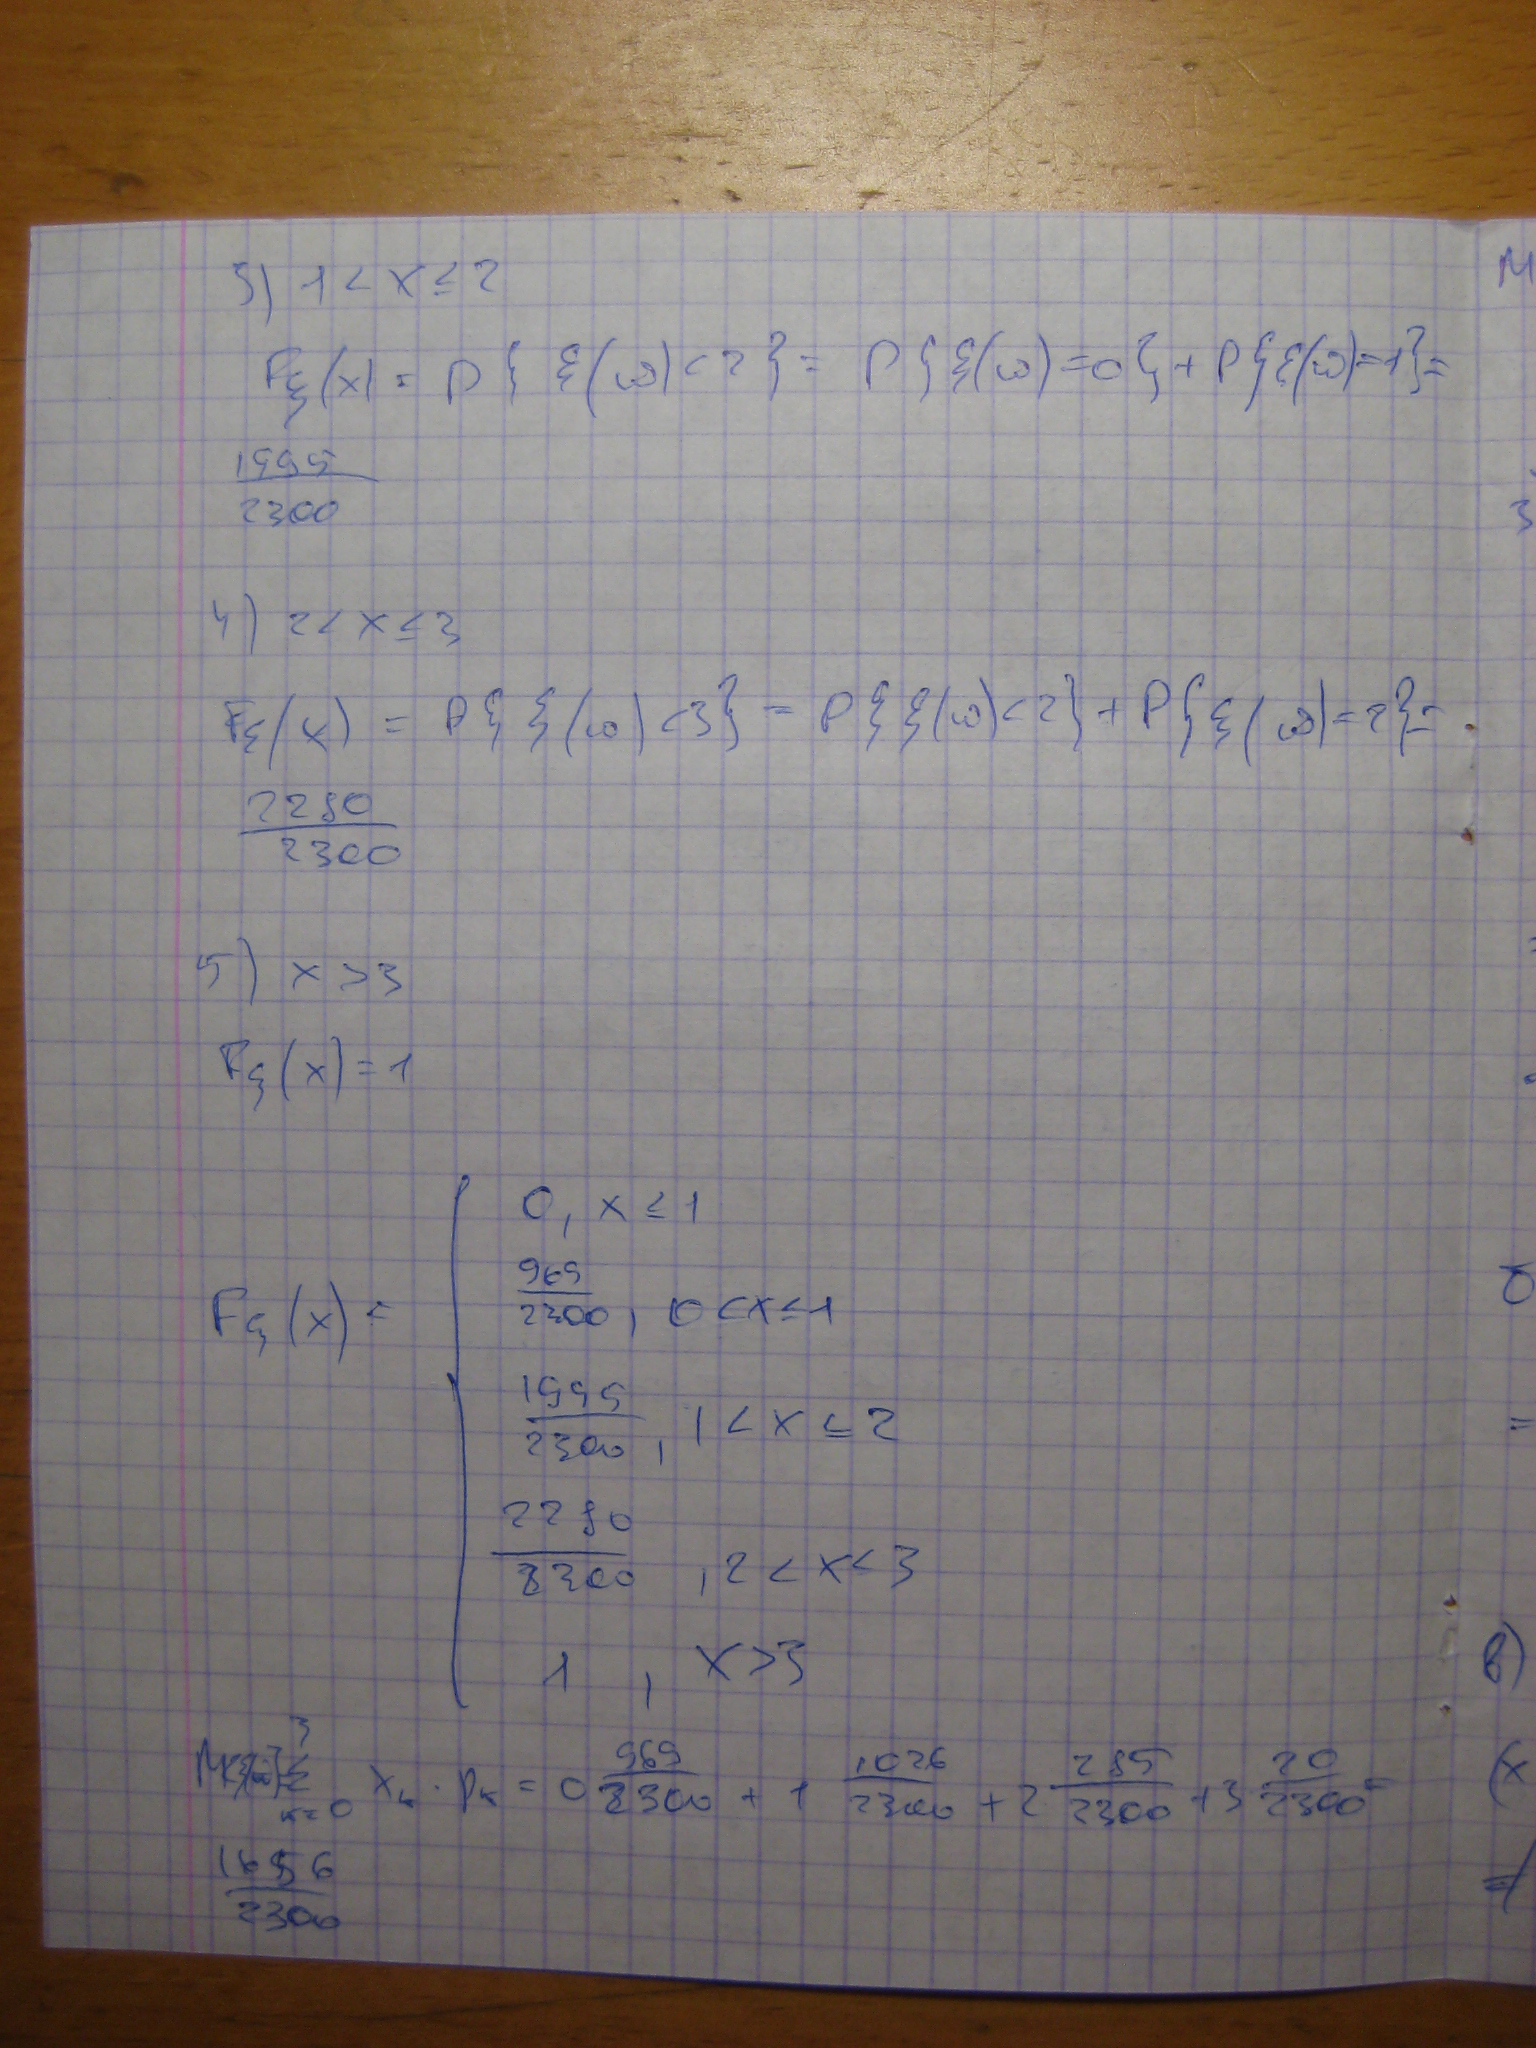 3) 1 < x ≤ 2
Fξ(x) = P{ξ(ω) < 2} = P{ξ(ω) = 0} + P{ξ(ω) = 1} =
1995/2300
4) 2 < x ≤ 3
Fξ(x) = P{ξ(ω) < 3} = P{ξ(ω) < 2} + P{ξ(ω) = 2} =
2280/2300
5) x > 3
Fξ(x) = 1
0, x ≤ 1
969/2300, 0 < x ≤ 1
Fξ(x) =
1995/2300, 1 < x ≤ 2
2280/2300, 2 < x < 3
1, x > 3
M{ξ(ω)} = Σ k=0 3 xk · pk = 0 969/2300 + 1 1026/2300 + 2 285/2300 + 3 20/2300 =
1656/2300
в)